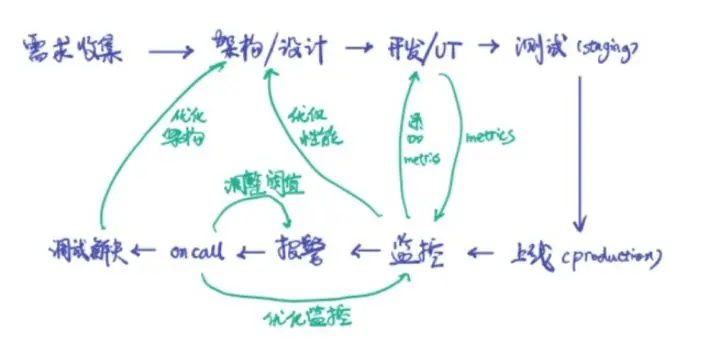 需求收集 → 架构/设计 → 开发/UT → 测试(staging)
优化
架构
优化
性能
添加
metric
metrics
调整阈值
调试解决 ← on call ← 报警 ← 监控 ← 上线(production)
优化监控